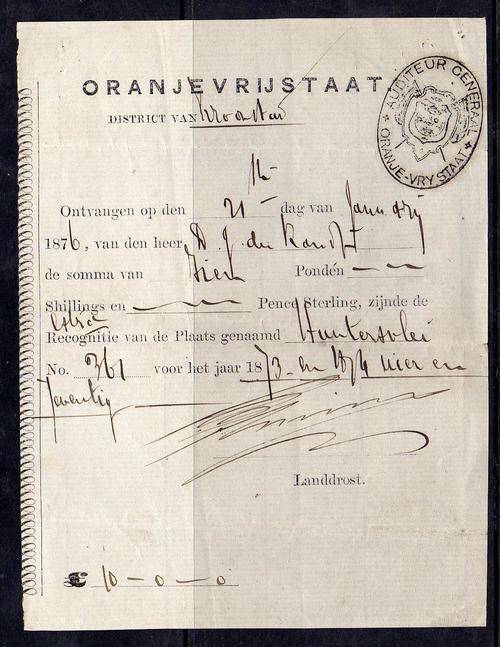 ORANJEVRIJSTAAT
AUDITEUR GENERAAL
ORANJE-VRY STAAT
DISTRICT VAN Kroonstad
Ontvangen op den 21 dag van January
1876, van den heer D. J. du Randt
de somma van Tien Ponden
Shillings en Pence Sterling, zijnde de
extra
Recognitie van de Plaats genaamd Huntersvlei
No. 361 voor het jaar 1873 en 1874 vier en
seventig
Landdrost.
£ 10-0-0